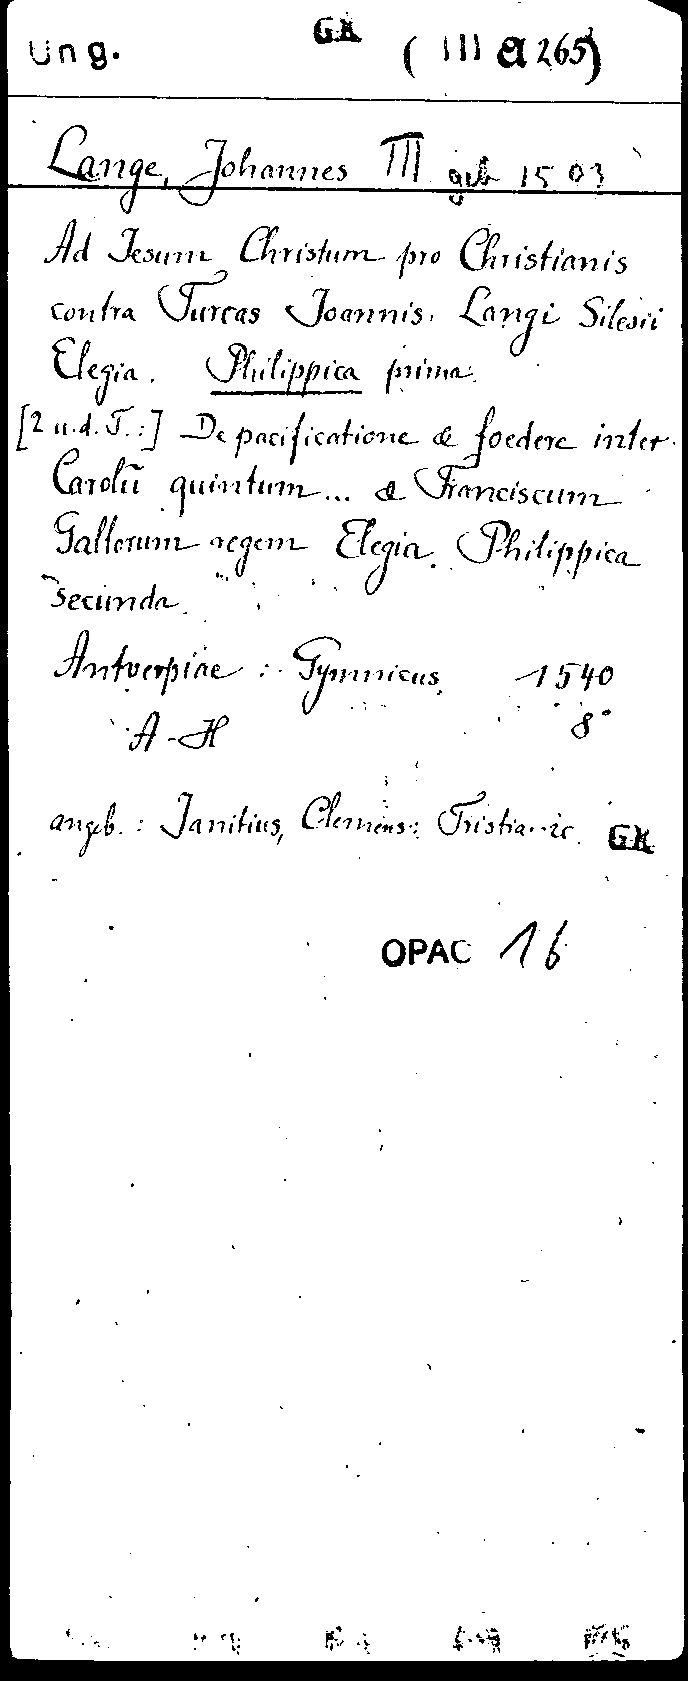 GK
Ung. (III a 265)
Lange, Johannes III geb 1503
Ad Jesum Christum pro Christianis
contra Turcas Joannis Langi Silesii
Elegia. Philippica prima.
[2 u.d.T.:] De pacificatione & foedere inter
Carolū quintum... & Franciscum
Gallorum regem Elegia. Philippica
secunda.
Antverpiae : Gymnicus, 1540
A-H 8°
angeb. : Janitius, Clemens: Tristia. ic. GK
OPAC 16